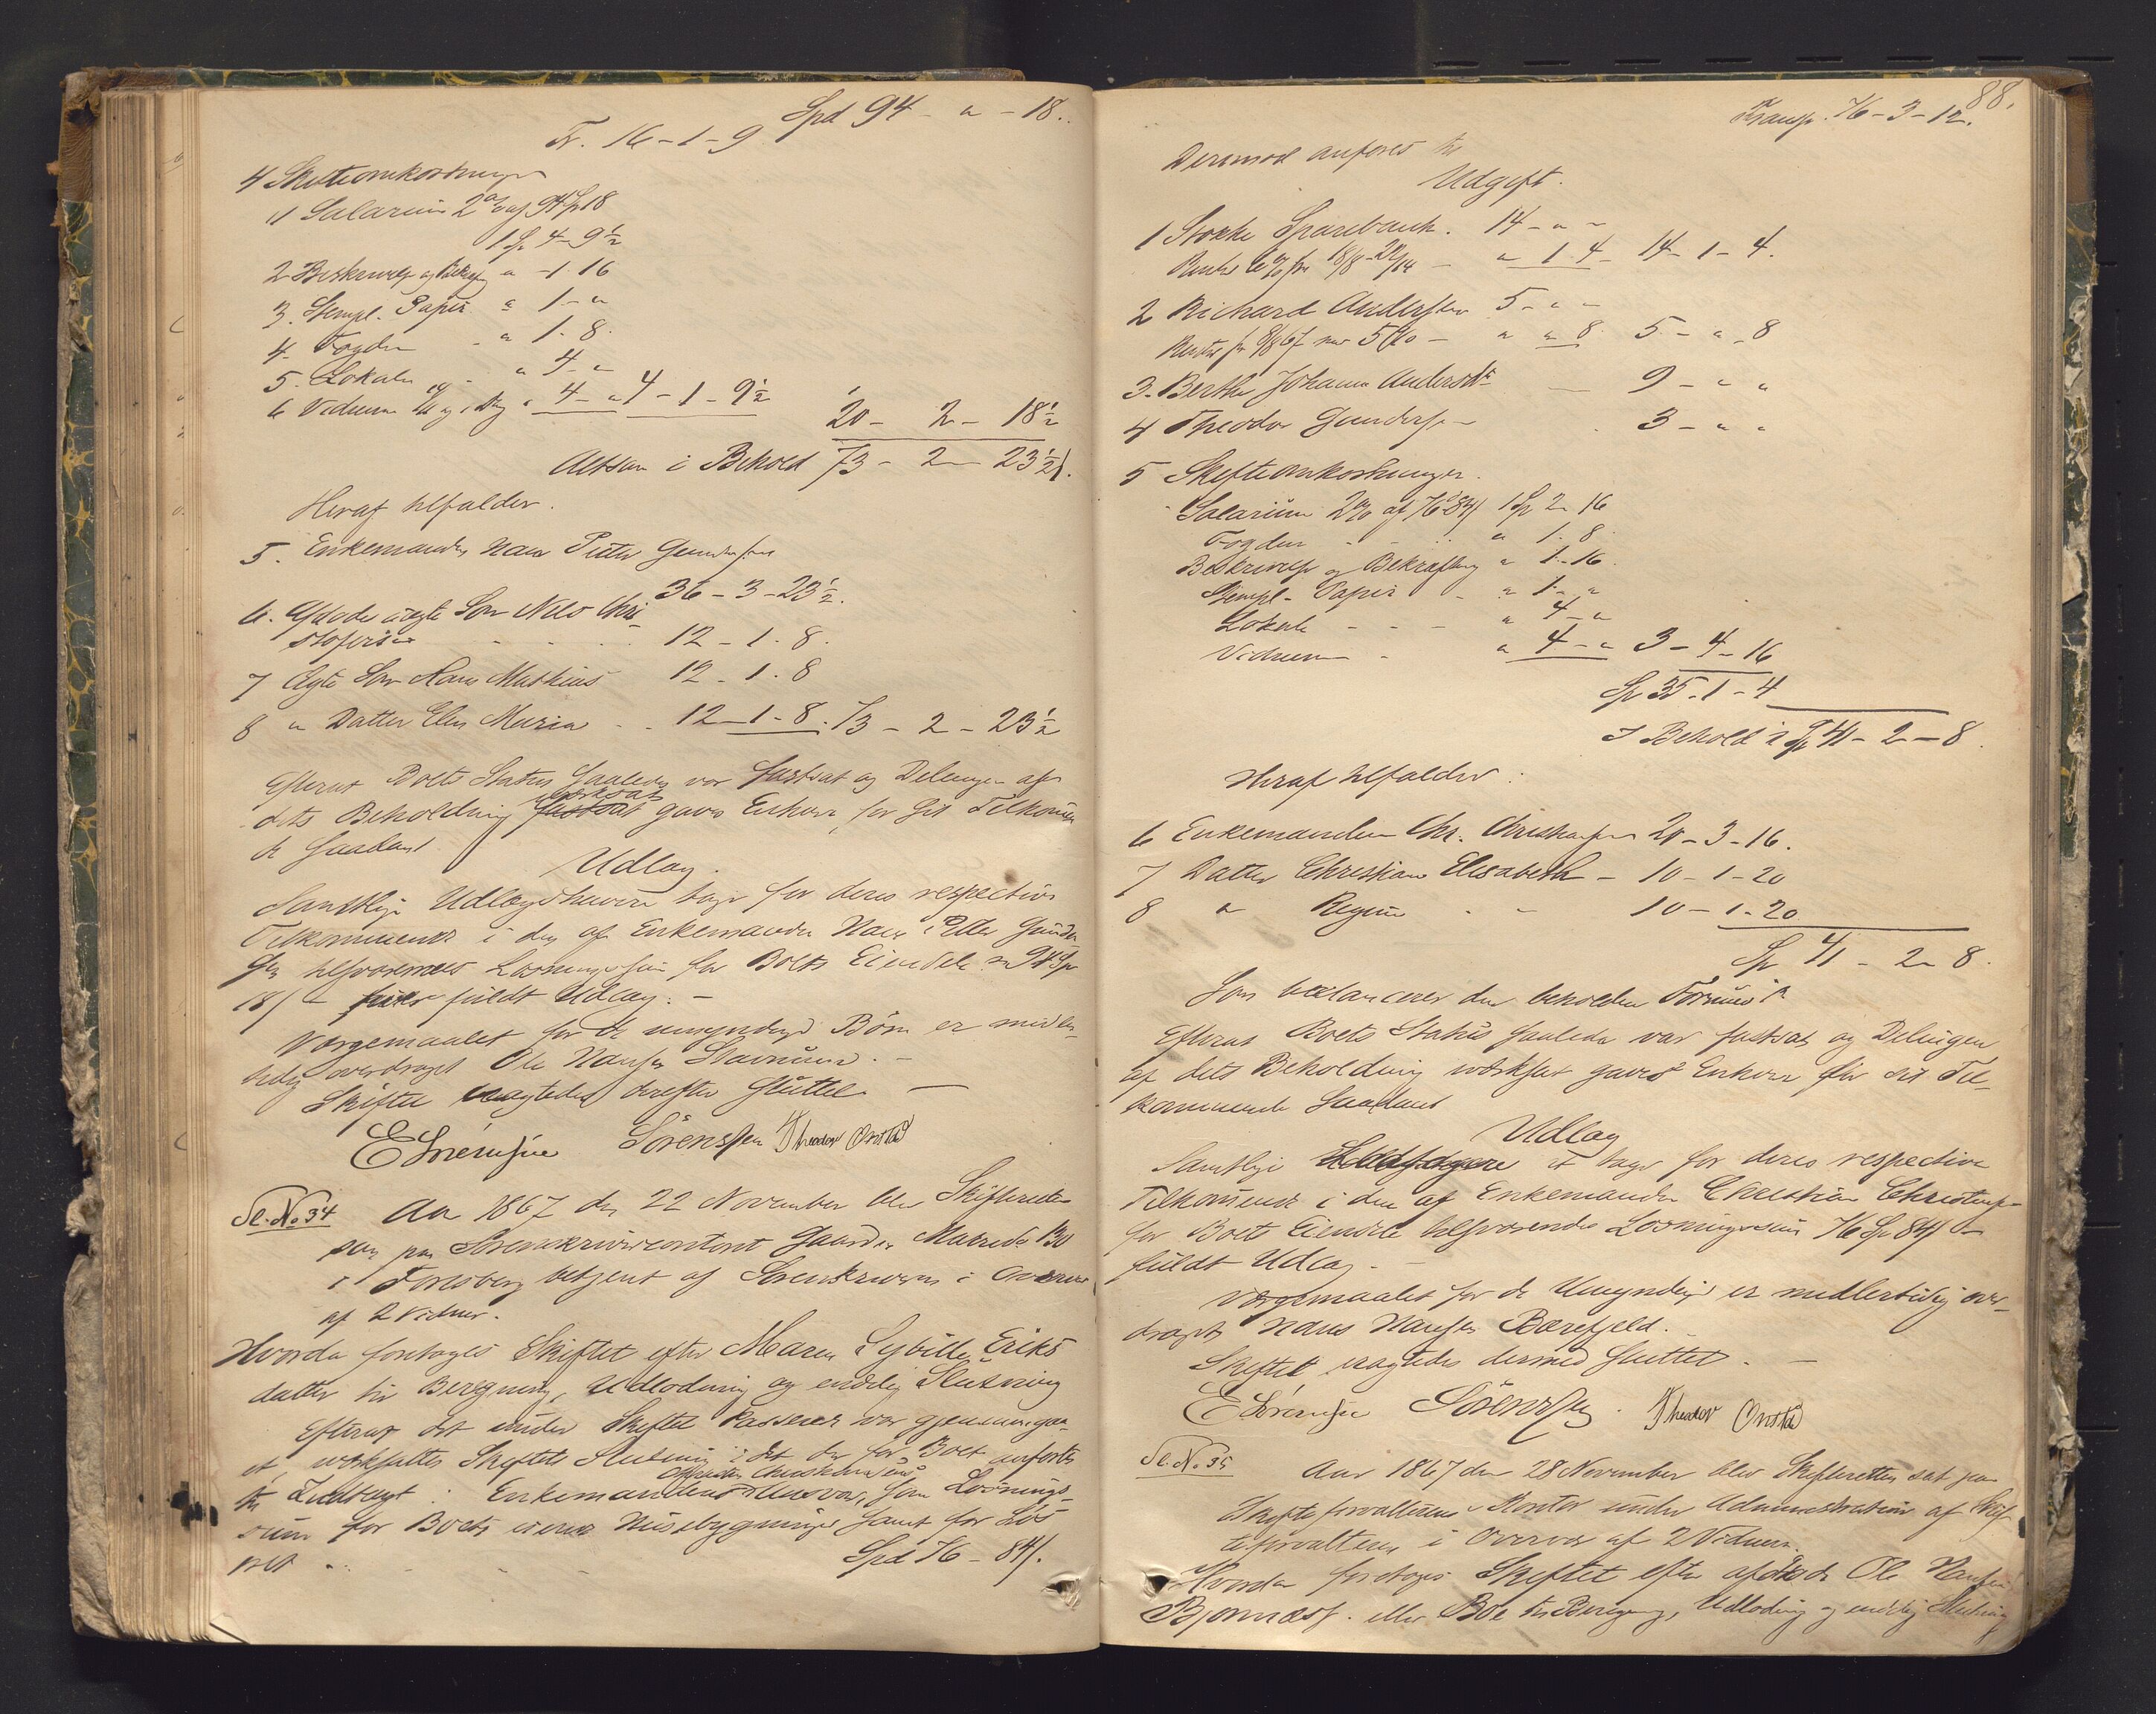 Spd 94 - " - 18.
Tr. 16-1-9
4 Skifteomkostninger
1) Salarium 2% af 94 Sp 18
1 Sp 4-9½
2 Beskrivelse og " -1-16
3. Stempl. Papir " 1-"
4. Fogden " 1-8
5. Lokale " 4-"
6 Vidnerne " 4-" 4-1-9½
20 - 2 - 18½
Altsaa i Behold 73 - 2 - 23½
Heraf tilfalder.
5. Enkemanden Hans Petter Gundersen
36-3-23½.
6. Afdøde ægte Søn Nils Chri-
stofersen 12-1-8.
7 Ægte Søn Hans Mathias 12-1-8
8 " Datter Elen Maria 12-1-8. 73-2-23½
Efterat Boets Status saaledes var fastsat og Delingen af
dets Beholdning værksat gaves Enhver for sit Tilkommen-
de saadant
Udlæg.
Samtlige Udlægshavere tage for deres respective
Tilkommende i den af Enkemanden Hans Petter Gunder-
sen tilsvarende Løsningssum for Boets Eiendele 94 Sp
18 fuldt Udlæg. -
Værgemaalet for de umyndige Børn er midler-
tidig overdraget Ole Hansen
Skiftet eragtedes derefter sluttet.
E Sørensen Sørenssen Theodor Onstad
Sl. No 34 Aar 1867 den 22 November blev Skifteretten
sat paa Sorenskrivercontoret Gaarden Matrede 130
i Tønsberg betjent af Sorenskriveren i Overvær
af 2 Vidner.
Hvorda foretoges Skiftet efter Maren Sybille Eriks
datter til Beregning, Udlodning og endelig Slutning
Efterat det under Skiftet Passerede var gjennemgaa-
et, værksattes Skiftets Slutning i det der for Boet anførtes
til Indtægt: Enkemandens Christian Christensens Ansvar, som Løsnings-
sum for Boets eiende Huusbygninger samt for Løs-
øret Spd 76 - 84
88.
Transp. 76-3-12.
Derimod anføres til
Udgift.
1 Stokke Sparebank. 14-"-
Renter 6% fra 18/8 - " 1-4- 14-1-4.
2 Richard Andersen 5-"-
Renter fra 9/8 67 med 5% - " " 8. 5-"-8
3. Berthe Johanne Andersdtr 9-"-"
4 Theodor Gundersen 3-"-"
5 Skifteomkostninger.
Salarium 2% af 76 Sp 84 1 Sp 2-16
Fogden " 1-8
Beskrivelse og Bekræftelse " 1-16.
Stempl. Papir " 1-"
Lokale " 4-"
Vidnerne " 4-" 3-4-16
Sp 35-1-4
I Behold Sp 41-2-8.
Heraf tilfalder:
6 Enkemanden Chr. Christensen 20-3-16.
7 Datter Christiane Elisabeth - 10-1-20
8 " Regine 10-1-20
Sp 41-2-8.
som balancerer den beholdne Formue
Efterat Boets Status saaledes var fastsat og Delingen
af dets Beholdning værksat gaves Enhver for sit Til-
kommende saadant
Udlæg
Samtlige at tage for deres respective
Tilkommende i den af Enkemanden Christian Christensen
for Boets Eiendele tilsvarende Løsningssum 76 Sp 84
fuldt Udlæg. -
Værgemaalet for de Umyndige er midlertidig over-
draget Hans Hansen Borefjeld.
Skiftet eragtedes dermed sluttet. -
E Sørensen Sørenssen. Theodor Onstad
Sl. No. 35
Aar 1867 den 28 November blev Skifteretten sat paa
Skifteforvalterens Kontor under Administration af Skif-
teforvalteren i Overvær af 2 Vidner.
Hvorda foretoges Skiftet efter afdøde Ole Hansen
Bjørnæs. eller Boe til Beregning, Udlodning og endelig Slutning